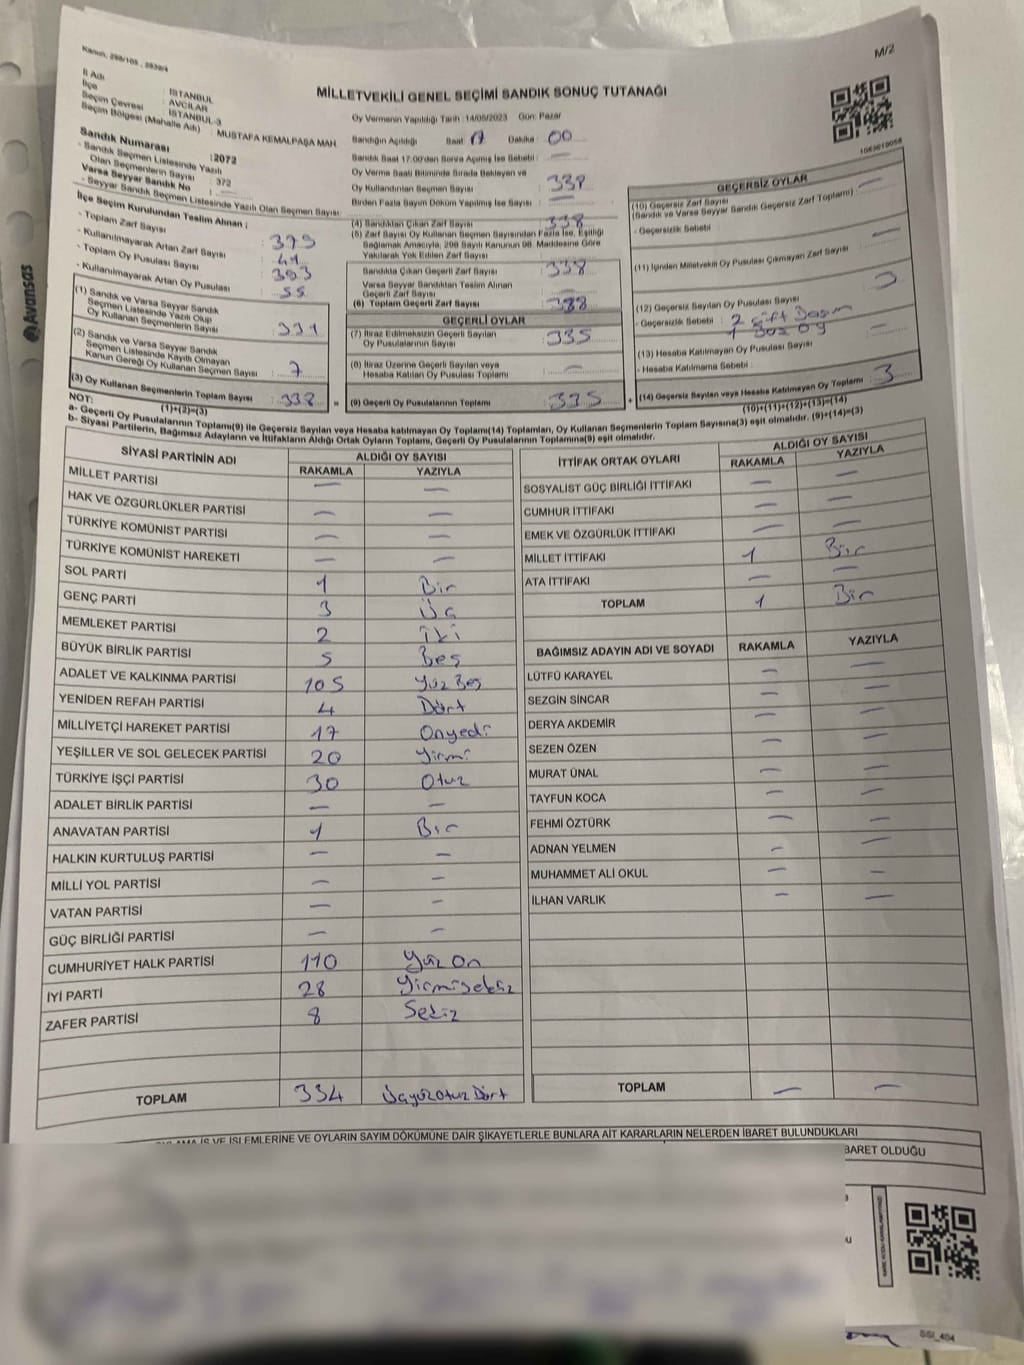 Kanun, 298/105 , 2839/4
M/2
İl Adı : İSTANBUL
İlçe : AVCILAR
Seçim Çevresi : İSTANBUL-3
Seçim Bölgesi (Mahalle Adı) : MUSTAFA KEMALPAŞA MAH.
Sandık Numarası :2072
- Sandık Seçmen Listesinde Yazılı
Olan Seçmenlerin Sayısı : 372
Varsa Seyyar Sandık No : —
- Seyyar Sandık Seçmen Listesinde Yazılı Olan Seçmen Sayısı:
MİLLETVEKİLİ GENEL SEÇİMİ SANDIK SONUÇ TUTANAĞI
Oy Vermenin Yapıldığı Tarih :14/05/2023 Gün: Pazar
Sandığın Açıldığı Saat : 17 Dakika : 00
Sandık Saat 17.00'dan Sonra Açılmış İse Sebebi : —
Oy Verme Saati Bitiminde Sırada Bekleyen ve
Oy Kullandırılan Seçmen Sayısı : 338
Birden Fazla Sayım Döküm Yapılmış İse Sayısı : —
İlçe Seçim Kurulundan Teslim Alınan ;
- Toplam Zarf Sayısı : 379
- Kullanılmayarak Artan Zarf Sayısı : 41
- Toplam Oy Pusulası Sayısı : 393
- Kullanılmayarak Artan Oy Pusulası : 55
(1) Sandık ve Varsa Seyyar Sandık
Seçmen Listesinde Yazılı Olup
Oy Kullanan Seçmenlerin Sayısı : 331
(2) Sandık ve Varsa Seyyar Sandık
Seçmen Listesinde Kayıtlı Olmayan
Kanun Gereği Oy Kullanan Seçmen Sayısı : 7
(3) Oy Kullanan Seçmenlerin Toplam Sayısı : 338
(1)+(2)=(3)
(4) Sandıktan Çıkan Zarf Sayısı : 338
(5) Zarf Sayısı Oy Kullanan Seçmen Sayısından Fazla İse, Eşitliği
Sağlamak Amacıyla, 298 Sayılı Kanunun 98. Maddesine Göre
Yakılarak Yok Edilen Zarf Sayısı : —
Sandıkta Çıkan Geçerli Zarf Sayısı : 338
Varsa Seyyar Sandıktan Teslim Alınan
Geçerli Zarf Sayısı : —
(6) Toplam Geçerli Zarf Sayısı : 338
GEÇERLİ OYLAR
(7) İtiraz Edilmeksizin Geçerli Sayılan
Oy Pusulalarının Sayısı : 335
(8) İtiraz Üzerine Geçerli Sayılan veya
Hesaba Katılan Oy Pusulası Toplamı : —
= (9) Geçerli Oy Pusulalarının Toplamı : 335
1063619058
GEÇERSİZ OYLAR
(10) Geçersiz Zarf Sayısı : —
(Sandık ve Varsa Seyyar Sandık Geçersiz Zarf Toplamı)
- Geçersizlik Sebebi :
(11) İçinden Milletvekili Oy Pusulası Çıkmayan Zarf Sayısı : —
(12) Geçersiz Sayılan Oy Pusulası Sayısı : 3
- Geçersizlik Sebebi : 2 çift Basım
1 Boş oy
(13) Hesaba Katılmayan Oy Pusulası Sayısı : —
- Hesaba Katılmama Sebebi :
+ (14) Geçersiz Sayılan veya Hesaba Katılmayan Oy Toplamı : 3
(10)+(11)+(12)+(13)=(14)
NOT:
a- Geçerli Oy Pusulalarının Toplamı(9) ile Geçersiz Sayılan veya hesaba katılmayan Oy Toplamı(14) Toplamları, Oy Kullanan Seçmenlerin Toplam Sayısına(3) eşit olmalıdır. (9)+(14)=(3)
b- Siyasi Partilerin, Bağımsız Adayların ve İttifakların Aldığı Ortak Oyların Toplamı, Geçerli Oy Pusulalarının Toplamına(9) eşit olmalıdır.
SİYASİ PARTİNİN ADI ALDIĞI OY SAYISI
RAKAMLA YAZIYLA
MİLLET PARTİSİ — —
HAK VE ÖZGÜRLÜKLER PARTİSİ — —
TÜRKİYE KOMÜNİST PARTİSİ — —
TÜRKİYE KOMÜNİST HAREKETİ — —
SOL PARTİ 1 Bir
GENÇ PARTİ 3 Üç
MEMLEKET PARTİSİ 2 İki
BÜYÜK BİRLİK PARTİSİ 5 Beş
ADALET VE KALKINMA PARTİSİ 105 Yüz Beş
YENİDEN REFAH PARTİSİ 4 Dört
MİLLİYETÇİ HAREKET PARTİSİ 17 Onyedi
YEŞİLLER VE SOL GELECEK PARTİSİ 20 Yirmi
TÜRKİYE İŞÇİ PARTİSİ 30 Otuz
ADALET BİRLİK PARTİSİ — —
ANAVATAN PARTİSİ 1 Bir
HALKIN KURTULUŞ PARTİSİ — —
MİLLİ YOL PARTİSİ — —
VATAN PARTİSİ — —
GÜÇ BİRLİĞİ PARTİSİ — —
CUMHURİYET HALK PARTİSİ 110 Yüz On
İYİ PARTİ 28 Yirmisekiz
ZAFER PARTİSİ 8 Sekiz
TOPLAM 334 Üçyüzotuz Dört
İTTİFAK ORTAK OYLARI ALDIĞI OY SAYISI
RAKAMLA YAZIYLA
SOSYALİST GÜÇ BİRLİĞİ İTTİFAKI — —
CUMHUR İTTİFAKI — —
EMEK VE ÖZGÜRLÜK İTTİFAKI — —
MİLLET İTTİFAKI 1 Bir
ATA İTTİFAKI — —
TOPLAM 1 Bir
BAĞIMSIZ ADAYIN ADI VE SOYADI RAKAMLA YAZIYLA
LÜTFÜ KARAYEL — —
SEZGİN SİNCAR — —
DERYA AKDEMİR — —
SEZEN ÖZEN — —
MURAT ÜNAL — —
TAYFUN KOCA — —
FEHMİ ÖZTÜRK — —
ADNAN YELMEN — —
MUHAMMET ALİ OKUL — —
İLHAN VARLIK — —
TOPLAM — —
İŞ VE İŞLEMLERİNE VE OYLARIN SAYIM DÖKÜMÜNE DAİR ŞİKAYETLERLE BUNLARA AİT KARARLARIN NELERDEN İBARET BULUNDUKLARI
BARET OLDUĞU
SSI_404
Avansas